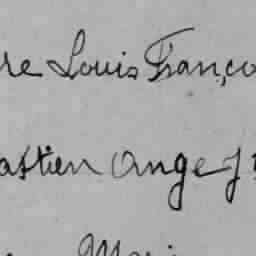 re Louis Franço
astien Ange J
Mari